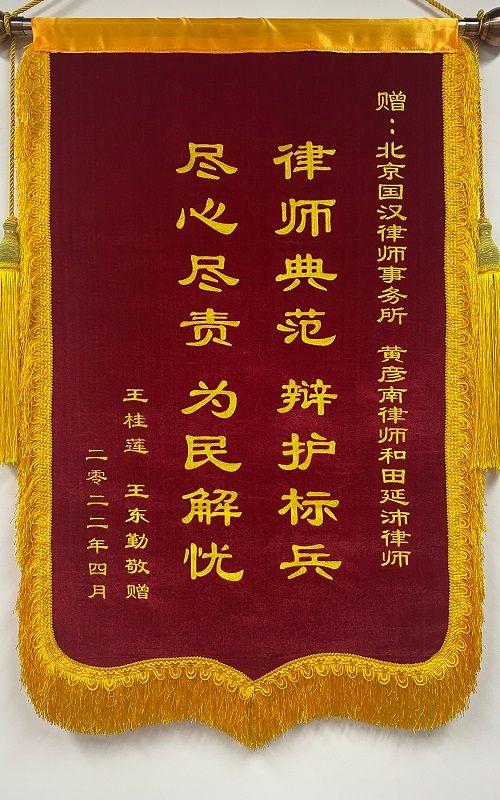 赠：北京国汉律师事务所 黄彦南律师和田延沛律师
律师典范 辩护标兵
尽心尽责 为民解忧
王桂莲 王东勤敬赠
二零二二年四月